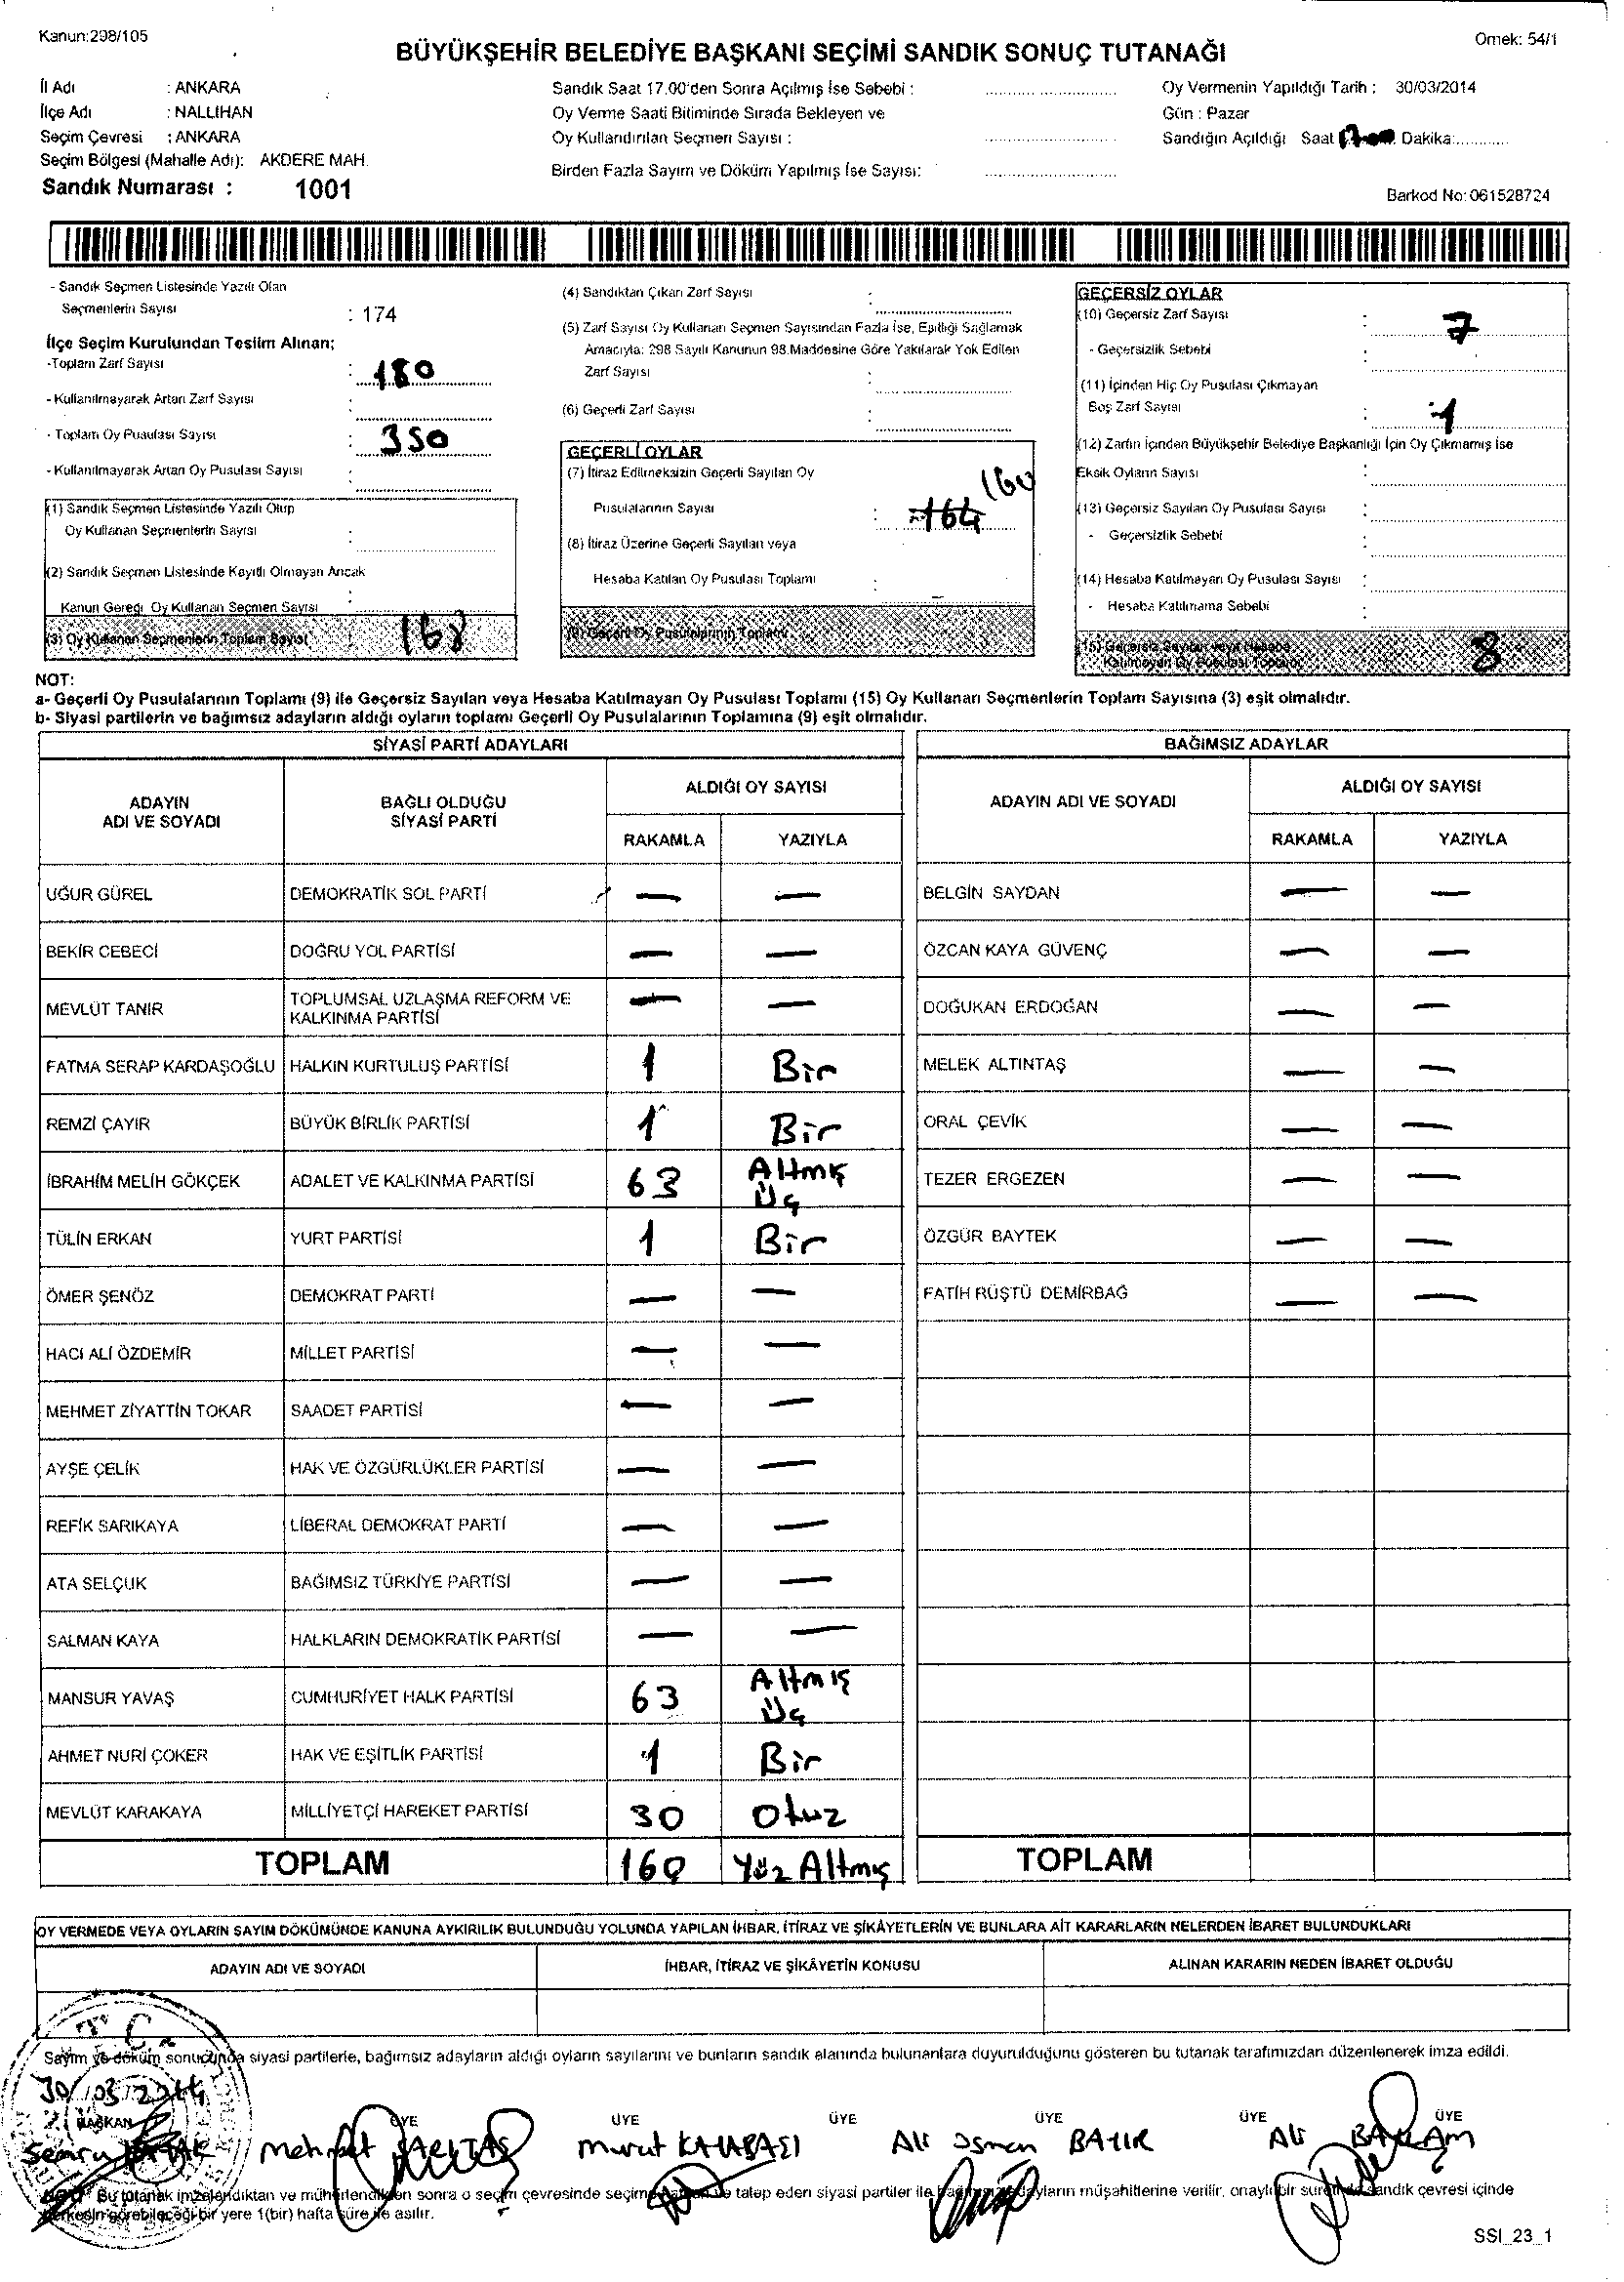 Kanun:298/105
Örnek: 54/1
BÜYÜKŞEHİR BELEDİYE BAŞKANI SEÇİMİ SANDIK SONUÇ TUTANAĞI
İl Adı : ANKARA
İlçe Adı : NALLIHAN
Seçim Çevresi : ANKARA
Seçim Bölgesi (Mahalle Adı): AKDERE MAH.
Sandık Numarası : 1001
Sandık Saat 17.00'den Sonra Açılmış İse Sebebi :
Oy Verme Saati Bitiminde Sırada Bekleyen ve
Oy Kullandırılan Seçmen Sayısı :
Birden Fazla Sayım ve Döküm Yapılmış İse Sayısı:
Oy Vermenin Yapıldığı Tarih : 30/03/2014
Gün : Pazar
Sandığın Açıldığı Saat Dakika:
Barkod No: 061528724
- Sandık Seçmen Listesinde Yazılı Olan
Seçmenlerin Sayısı : 174
İlçe Seçim Kurulundan Teslim Alınan;
-Toplam Zarf Sayısı : 180
- Kullanılmayarak Artan Zarf Sayısı :
- Toplam Oy Pusulası Sayısı : 350
- Kullanılmayarak Artan Oy Pusulası Sayısı :
(1) Sandık Seçmen Listesinde Yazılı Olup
Oy Kullanan Seçmenlerin Sayısı :
(2) Sandık Seçmen Listesinde Kayıtlı Olmayan Ancak
Kanun Gereği Oy Kullanan Seçmen Sayısı :
(3) Oy Kullanan Seçmenlerin Toplam Sayısı 168
(4) Sandıktan Çıkan Zarf Sayısı :
(5) Zarf Sayısı Oy Kullanan Seçmen Sayısından Fazla İse, Eşitliği Sağlamak
Amacıyla; 298 Sayılı Kanunun 98.Maddesine Göre Yakılarak Yok Edilen
Zarf Sayısı :
(6) Geçerli Zarf Sayısı :
GEÇERLİ OYLAR
(7) İtiraz Edilmeksizin Geçerli Sayılan Oy
Pusulalarının Sayısı : 164 160
(8) İtiraz Üzerine Geçerli Sayılan veya
Hesaba Katılan Oy Pusulası Toplamı : –
(9) Geçerli Oy Pusulalarının Toplamı
GEÇERSİZ OYLAR
(10) Geçersiz Zarf Sayısı : 7
- Geçersizlik Sebebi :
(11) İçinden Hiç Oy Pusulası Çıkmayan
Boş Zarf Sayısı : 1
(12) Zarfın İçinden Büyükşehir Belediye Başkanlığı İçin Oy Çıkmamış İse
Eksik Oyların Sayısı :
(13) Geçersiz Sayılan Oy Pusulası Sayısı :
- Geçersizlik Sebebi :
(14) Hesaba Katılmayan Oy Pusulası Sayısı :
- Hesaba Katılmama Sebebi :
(15) Geçersiz Sayılan veya Hesaba
Katılmayan Oy Pusulası Toplamı 8
NOT:
a- Geçerli Oy Pusulalarının Toplamı (9) ile Geçersiz Sayılan veya Hesaba Katılmayan Oy Pusulası Toplamı (15) Oy Kullanan Seçmenlerin Toplam Sayısına (3) eşit olmalıdır.
b- Siyasi partilerin ve bağımsız adayların aldığı oyların toplamı Geçerli Oy Pusulalarının Toplamına (9) eşit olmalıdır.
SİYASİ PARTİ ADAYLARI
ADAYIN ADI VE SOYADI BAĞLI OLDUĞU SİYASİ PARTİ ALDIĞI OY SAYISI
RAKAMLA YAZIYLA
UĞUR GÜREL DEMOKRATİK SOL PARTİ — —
BEKİR CEBECİ DOĞRU YOL PARTİSİ — —
MEVLÜT TANIR TOPLUMSAL UZLAŞMA REFORM VE KALKINMA PARTİSİ — —
FATMA SERAP KARDAŞOĞLU HALKIN KURTULUŞ PARTİSİ 1 Bir
REMZİ ÇAYIR BÜYÜK BİRLİK PARTİSİ 1 Bir
İBRAHİM MELİH GÖKÇEK ADALET VE KALKINMA PARTİSİ 63 Altmış Üç
TÜLİN ERKAN YURT PARTİSİ 1 Bir
ÖMER ŞENÖZ DEMOKRAT PARTİ — —
HACI ALİ ÖZDEMİR MİLLET PARTİSİ — —
MEHMET ZİYATTİN TOKAR SAADET PARTİSİ — —
AYŞE ÇELİK HAK VE ÖZGÜRLÜKLER PARTİSİ — —
REFİK SARIKAYA LİBERAL DEMOKRAT PARTİ — —
ATA SELÇUK BAĞIMSIZ TÜRKİYE PARTİSİ — —
SALMAN KAYA HALKLARIN DEMOKRATİK PARTİSİ — —
MANSUR YAVAŞ CUMHURİYET HALK PARTİSİ 63 Altmış Üç
AHMET NURİ ÇOKER HAK VE EŞİTLİK PARTİSİ 1 Bir
MEVLÜT KARAKAYA MİLLİYETÇİ HAREKET PARTİSİ 30 Otuz
TOPLAM 160 Yüz Altmış
BAĞIMSIZ ADAYLAR
ADAYIN ADI VE SOYADI ALDIĞI OY SAYISI
RAKAMLA YAZIYLA
BELGİN SAYDAN — —
ÖZCAN KAYA GÜVENÇ — —
DOĞUKAN ERDOĞAN — —
MELEK ALTINTAŞ — —
ORAL ÇEVİK — —
TEZER ERGEZEN — —
ÖZGÜR BAYTEK — —
FATİH RÜŞTÜ DEMİRBAĞ — —
TOPLAM
OY VERMEDE VEYA OYLARIN SAYIM DÖKÜMÜNDE KANUNA AYKIRILIK BULUNDUĞU YOLUNDA YAPILAN İHBAR, İTİRAZ VE ŞİKÂYETLERİN VE BUNLARA AİT KARARLARIN NELERDEN İBARET BULUNDUKLARI
ADAYIN ADI VE SOYADI İHBAR, İTİRAZ VE ŞİKÂYETİN KONUSU ALINAN KARARIN NEDEN İBARET OLDUĞU
T.C.
Sayım ve döküm sonucunda siyasi partilerle, bağımsız adayların aldığı oyların sayılarını ve bunların sandık alanında bulunanlara duyurulduğunu gösteren bu tutanak tarafımızdan düzenlenerek imza edildi.
30/03/2014
BAŞKAN ÜYE ÜYE ÜYE ÜYE ÜYE ÜYE
Mehmet SARITAŞ Murat Ali Osman BATIR Ali BAYRAM
Bu tutanak imzalandıktan ve mühürlendikten sonra o seçim çevresinde seçime katılan ve talep eden siyasi partiler ile bağımsız adayların müşahitlerine verilir, onaylı bir sureti de sandık çevresi içinde
herkesin görebileceği bir yere 1(bir) hafta süre ile asılır.
SSI_23_1